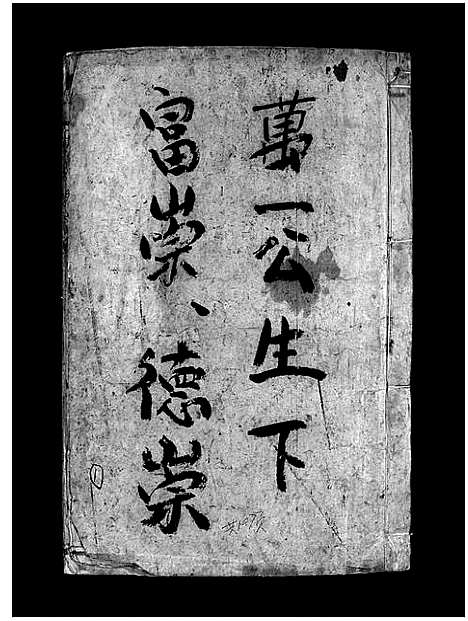 萬一公生下
富崇、德崇